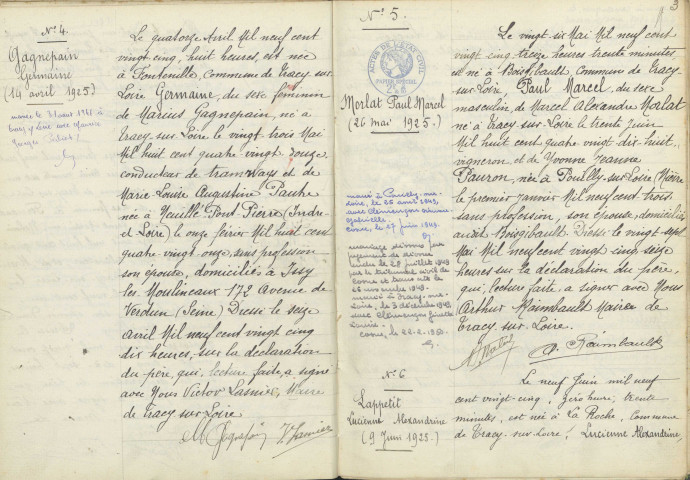 N° 4
Gagnepain
Germaine
(14 avril 1925)
Le quatorze Avril Mil neuf cent
vingt cinq, huit heures, est née
à Fontenille, commune de Tracy sur
Loire Germaine, du sexe féminin
de Marius Gagnepain, né à
Tracy sur Loire le vingt trois Mai
Mil huit cent quatre vingt douze
conducteur de tramways et de
Marie Louise Augustine
née à Neuillé Pont Pierre (Indre-
et Loire) le onze février Mil huit cent
quatre vingt onze, sans profession
son épouse, domiciliés à Issy
les Moulineaux 172 Avenue de
Verdun (Seine) Dressé le seize
Avril Mil neuf cent vingt cinq
dix heures, sur la déclaration
du père, qui, lecture faite, a signé
avec Nous Victor Lasnier, Maire
de Tracy sur Loire
3
N° 5.
ACTES DE L'ETAT CIVIL
PAPIER SPÉCIAL
Morlat Paul Marcel
(26 mai 1925.)
marié à Pouilly-sur-
Loire, le 25 avril 1949,
avec Clémençon
Gabrielle
Cosne, le 27 juin 1949.
mariage dissous par
jugement de divorce
rendu le 28 juillet 1949
par le tribunal civil de
Cosne et transcrit le
26 novembre 1949.
marié à Tracy-sur-
Loire, le 3 décembre 1949
avec Clémençon
Cosne, le
Le vingt-six Mai Mil neuf cent
vingt cinq treize heures trente minutes,
est né à Boisgibault, commune de Tracy
sur Loire Paul Marcel, du sexe
masculin, de Marcel Alexandre Morlat
né à Tracy sur Loire le trente Juin
Mil huit cent quatre vingt dix huit,
vigneron et de Yvonne Jeanne
Pauron, née à Pouilly sur Loire (Nièvre
le premier janvier Mil neuf cent trois
sans profession, son épouse, domiciliés
audit Boisgibault. Dressé le vingt sept
Mai Mil neuf cent vingt cinq seize
heures sur la déclaration du père,
qui, lecture faite a signé avec Nous
Arthur Raimbault Maire de
Tracy sur Loire.
A. Raimbault
N° 6
Lappetit
Lucienne Alexandrine
(9 Juin 1925.)
Le neuf Juin mil neuf
cent vingt-cinq, zéro heure, trente
minutes, est née à La Roche, commune
de Tracy-sur-Loire, Lucienne Alexandrine,